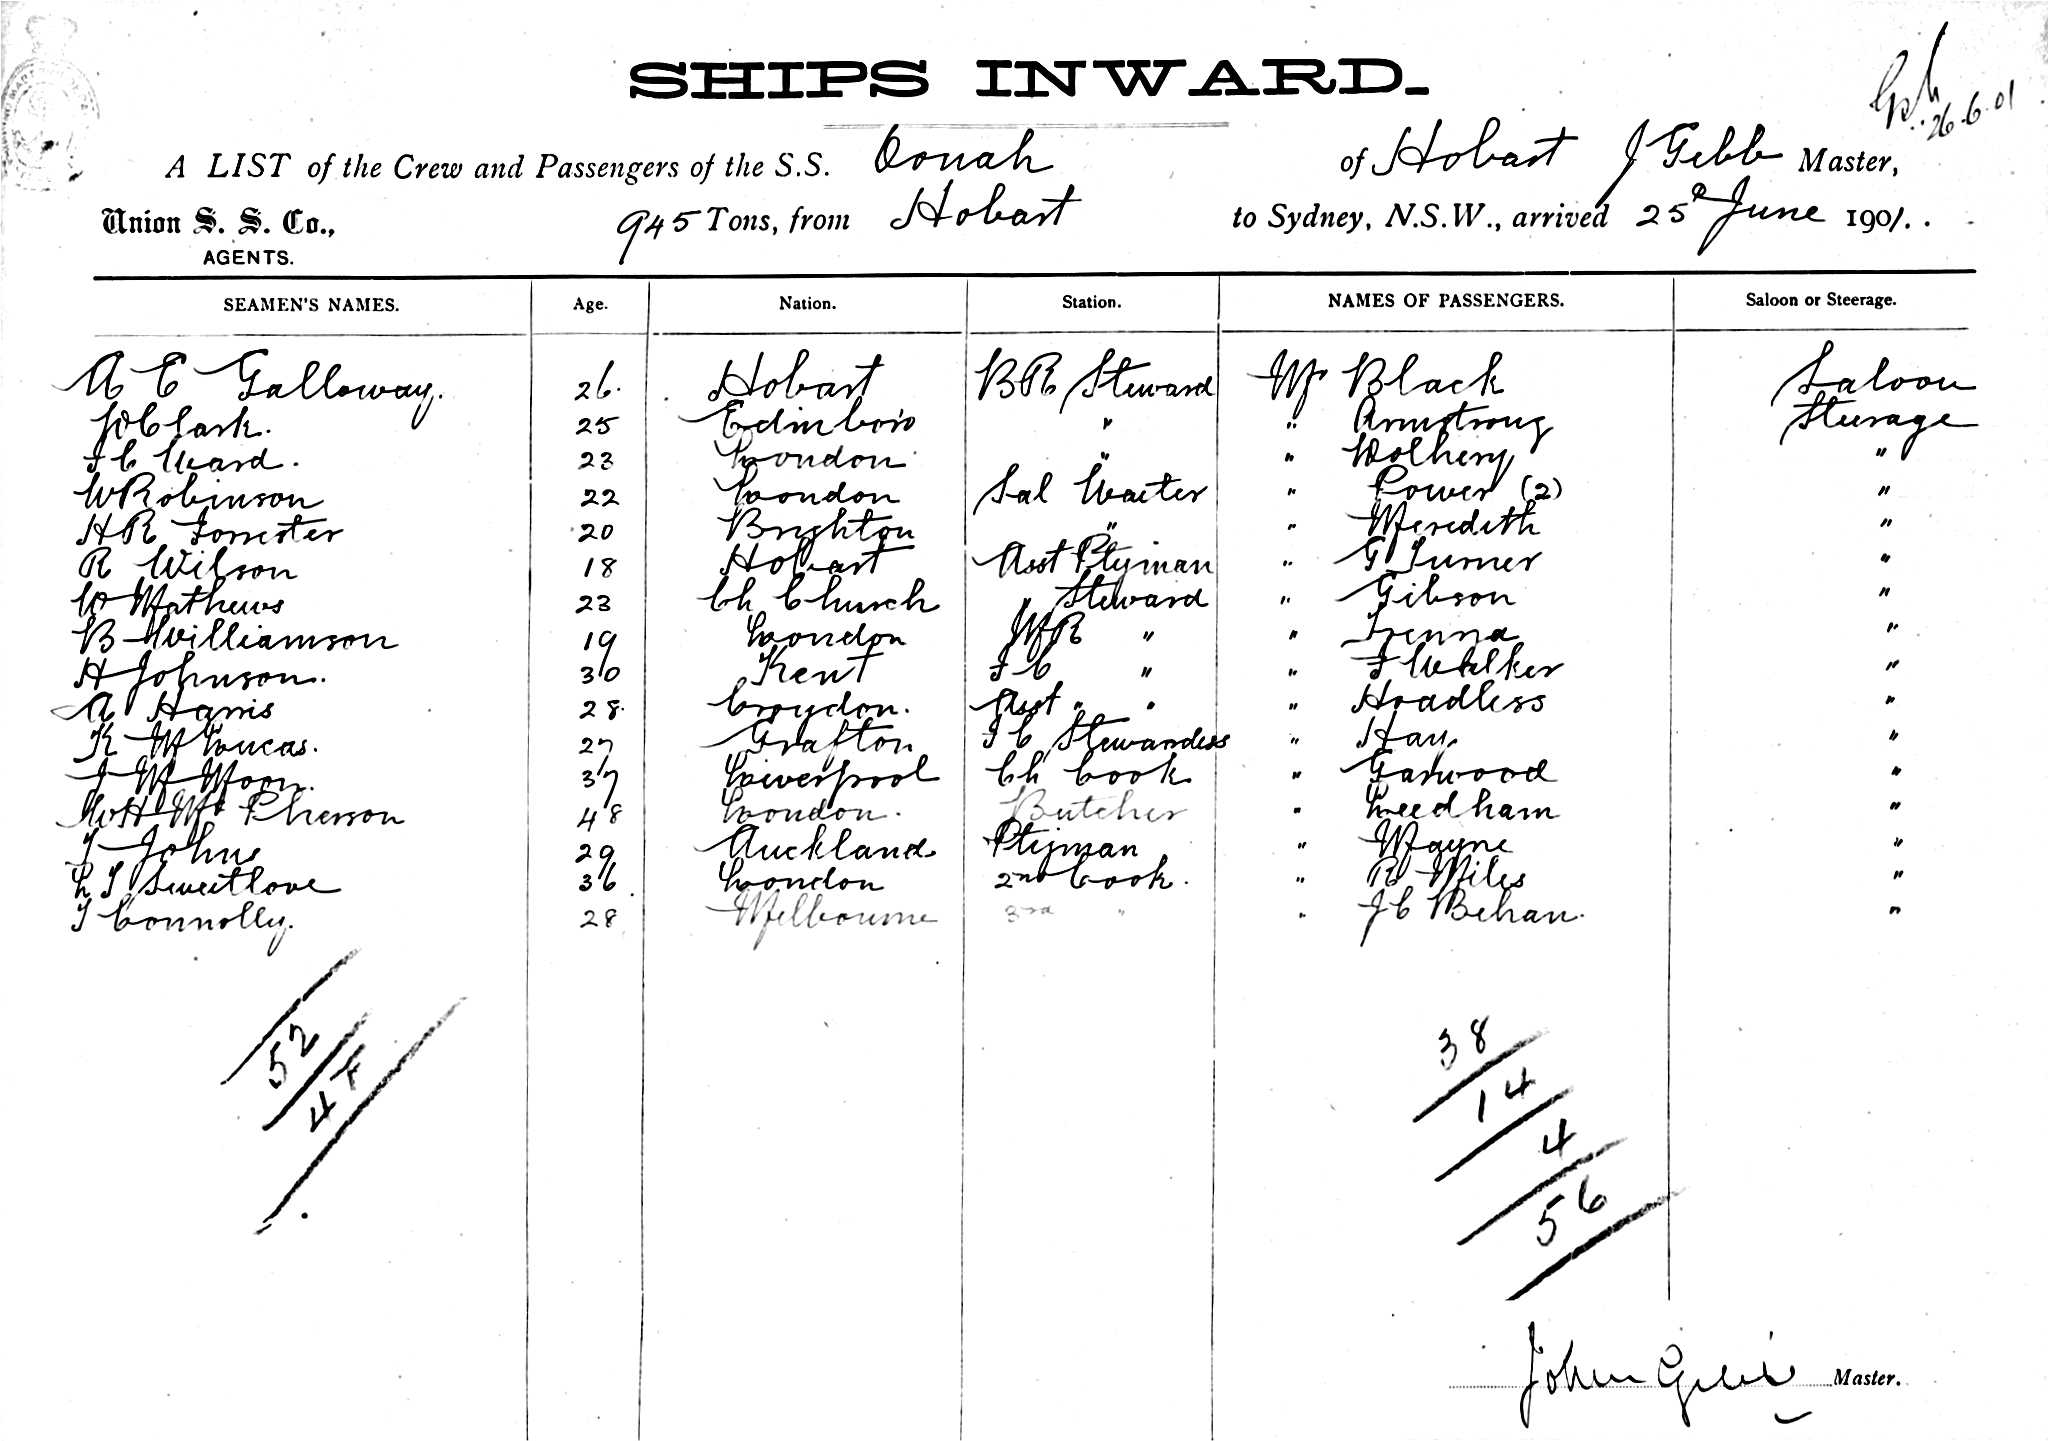 SHIPS INWARD.
26.6.01
A LIST of the Crew and Passengers of the S.S. Oonah of Hobart J Gibb Master,
Union S. S. Co., 945 Tons, from Hobart to Sydney, N.S.W., arrived 25th June 1901.
AGENTS.
SEAMEN'S NAMES. Age. Nation. Station. NAMES OF PASSENGERS. Saloon or Steerage.
A E Galloway. 26. Hobart BR Steward Mr Black Saloon
W Clark. 25 Edinboro " " Armstrong Steerage
F C Ward. 23 London " " Wolhery "
W Robinson 22 London Sal Waiter " Power (2) "
H R Forrester 20 Brighton " " Meredith "
R Wilson 18 Hobart Asst Ptyman " G Turner "
W Mathews 23 Ch Church " Steward " Gibson "
B Williamson 19 London MR " " Frenna "
H Johnson. 30 Kent F C " " F Walker "
A Harris 28. Croydon. Asst " " " Hoadless "
K M Lucas. 27 Grafton F C Stewardess " Hay "
J W Moon. 37 Liverpool Ch Cook " Garwood "
W H Mc Pherson 48 London. Butcher " Leedham "
T Johns 29 Auckland Ptyman " Mayne "
L T Sweetlove 36 London 2nd Cook. " R Miles "
T Connolly. 28 Melbourne 3rd " " J C Behan. "
52
44
38
14
4
56
John Gibb Master.